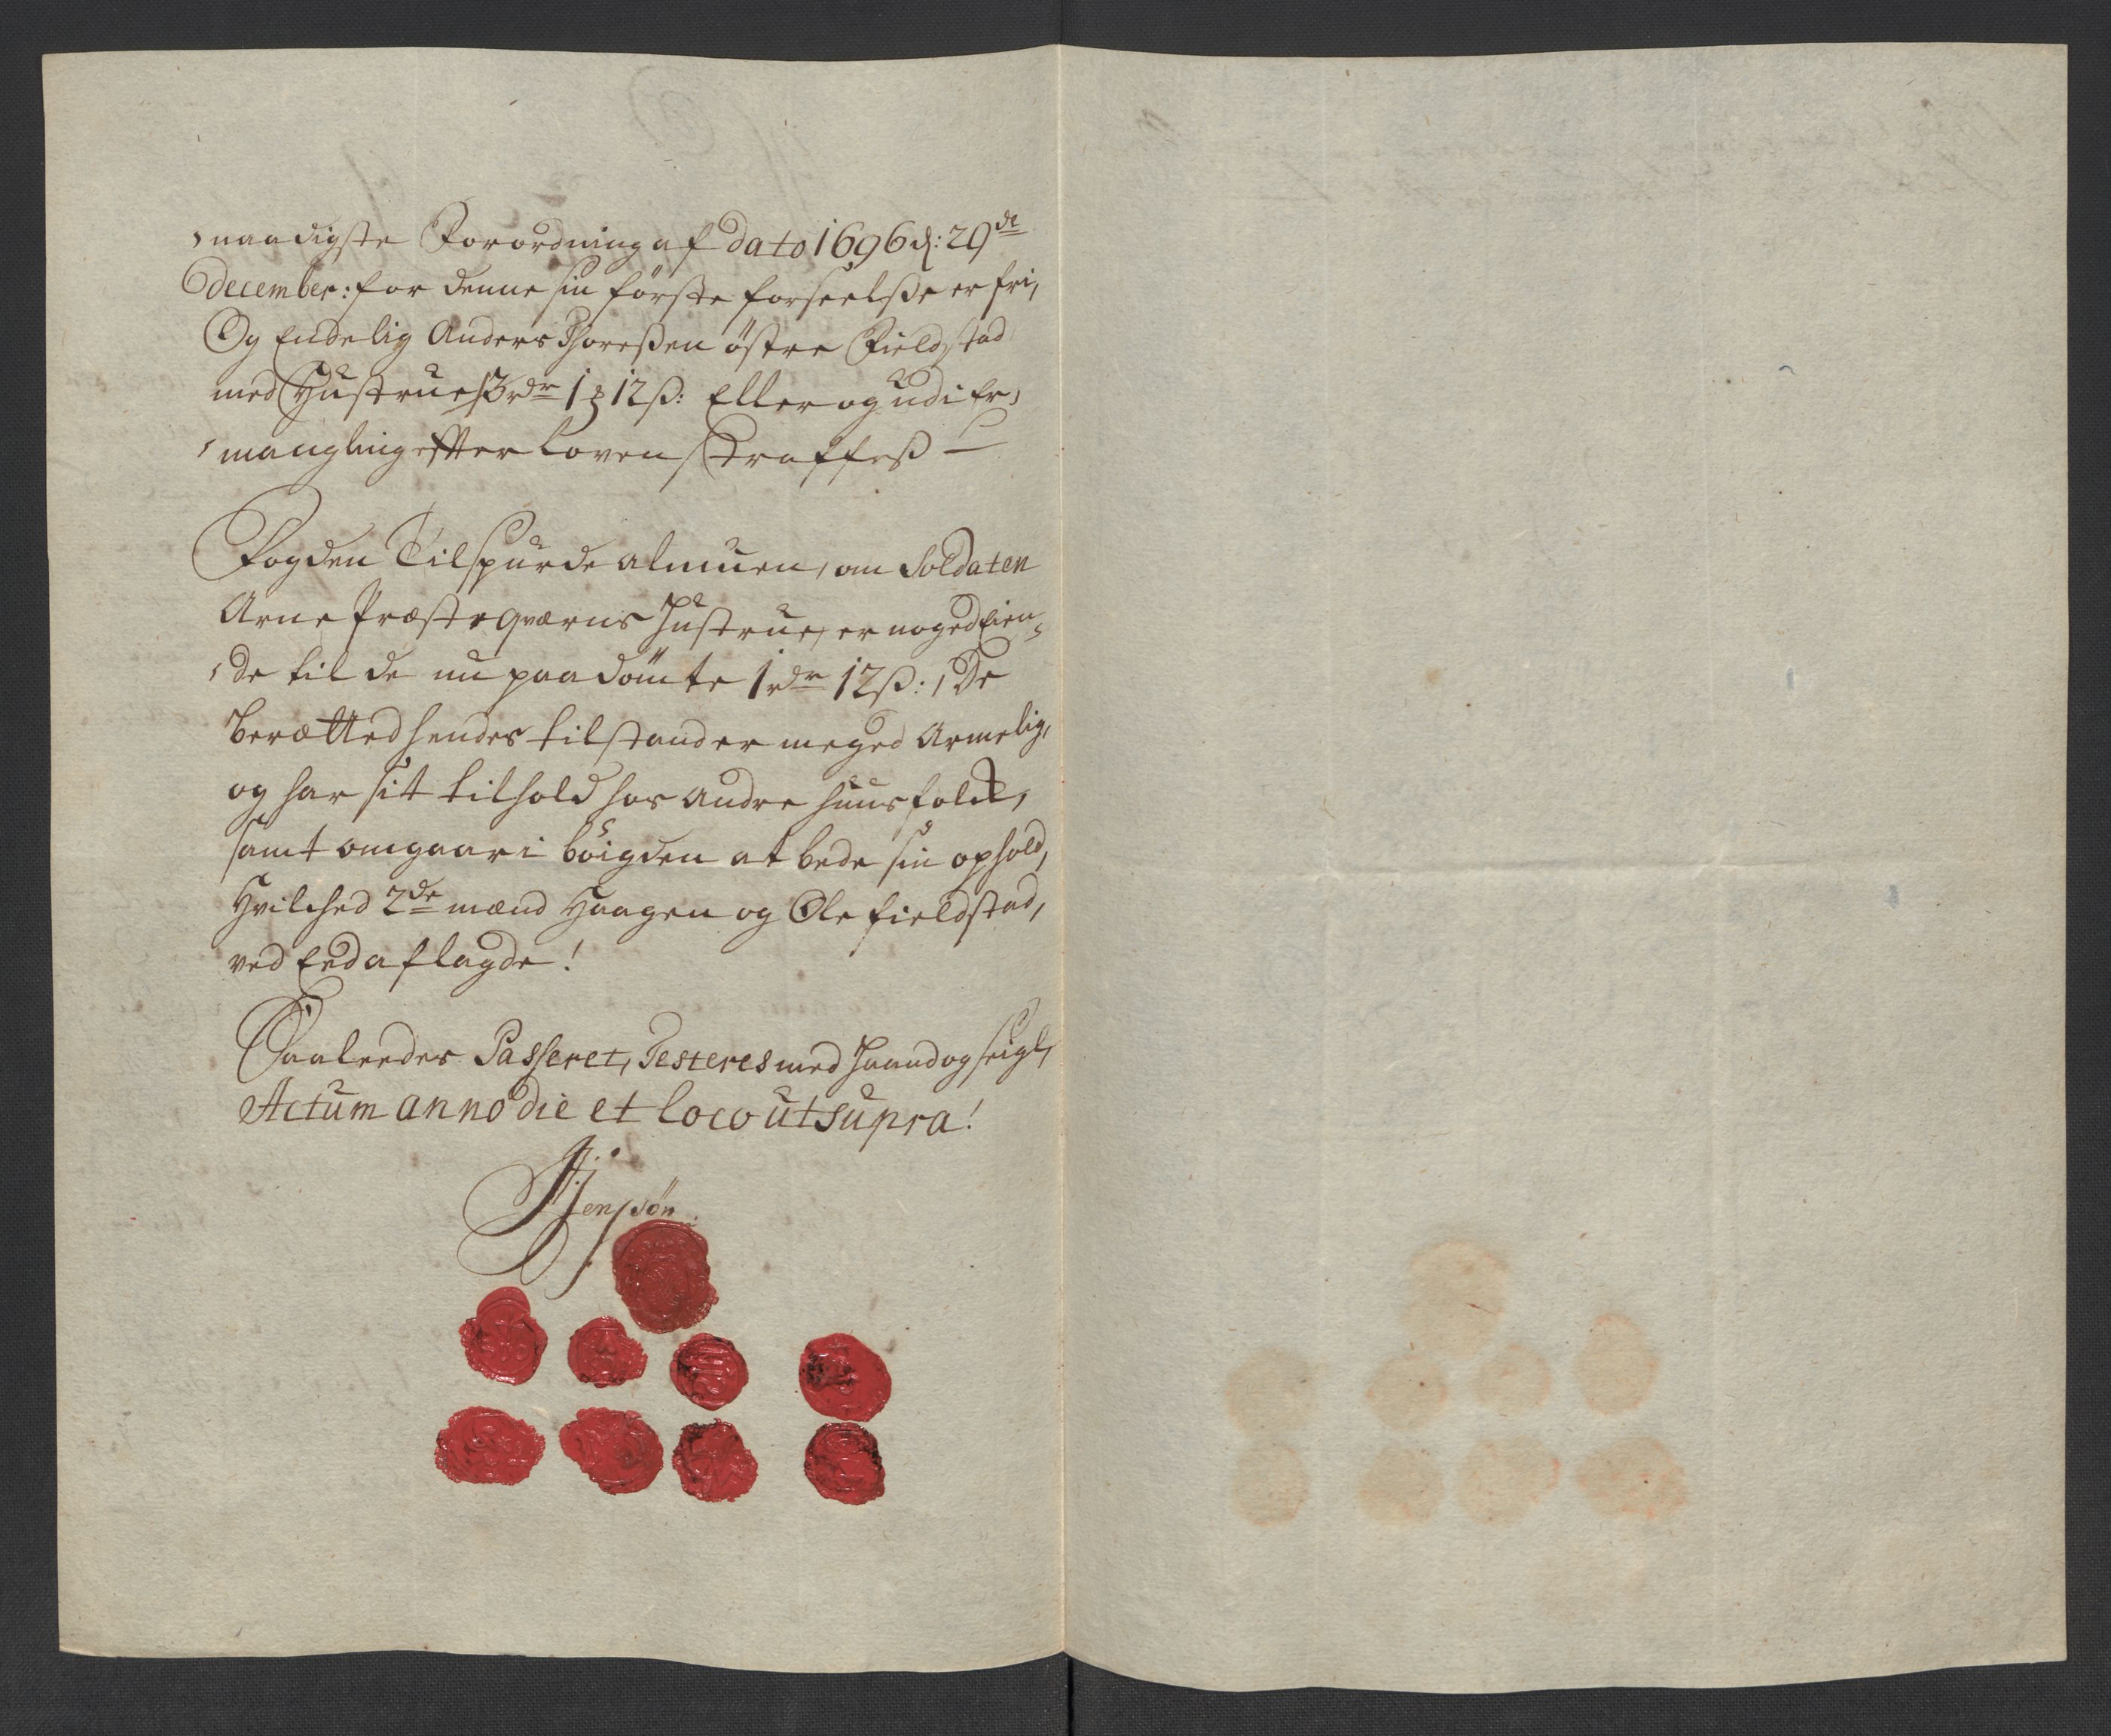 naadigste Forordning af dato 1696 d: 29de
December: for denne sin förste forseelsse er fri,
Og Endelig Anders Thoressen östre Fieldstad
med Hustrue 3 rdr 1 12 ß: Eller og udi fr,
mangling effter loven straffess
Fogden Tilspurde almuen, om Soldaten
Arne Præsteqværns Hustrue, er noged Eien,
de til de nu paadömte 1 rdr 12 ß:, De
berætted hendes tilstand er meged Armelig,
og har sit tilhold hos andre huusfolck,
samt omgaar i böigden at bede sin ophold,
Hvilched 2de mænd Haagen og Ole Fieldstad,
ved Eed aflagde!
Saaleedes Passeret, Testeres med Haand og seigl,
Actum anno die et loco ut supra!
Jensøn